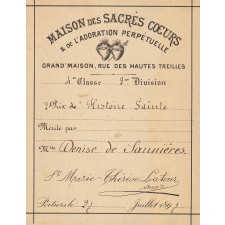 MAISON DES SACRÉS CŒURS
& DE L'ADORATION PERPÉTUELLE
GRAND'MAISON, RUE DES HAUTES TREILLES
4me Classe 2me Division
2e Prix de Histoire Sainte
Mérité par
Mlle Denise de Saunières
Sr Marie Thérèse Latour
supre
Poitiers le 27 Juillet 189